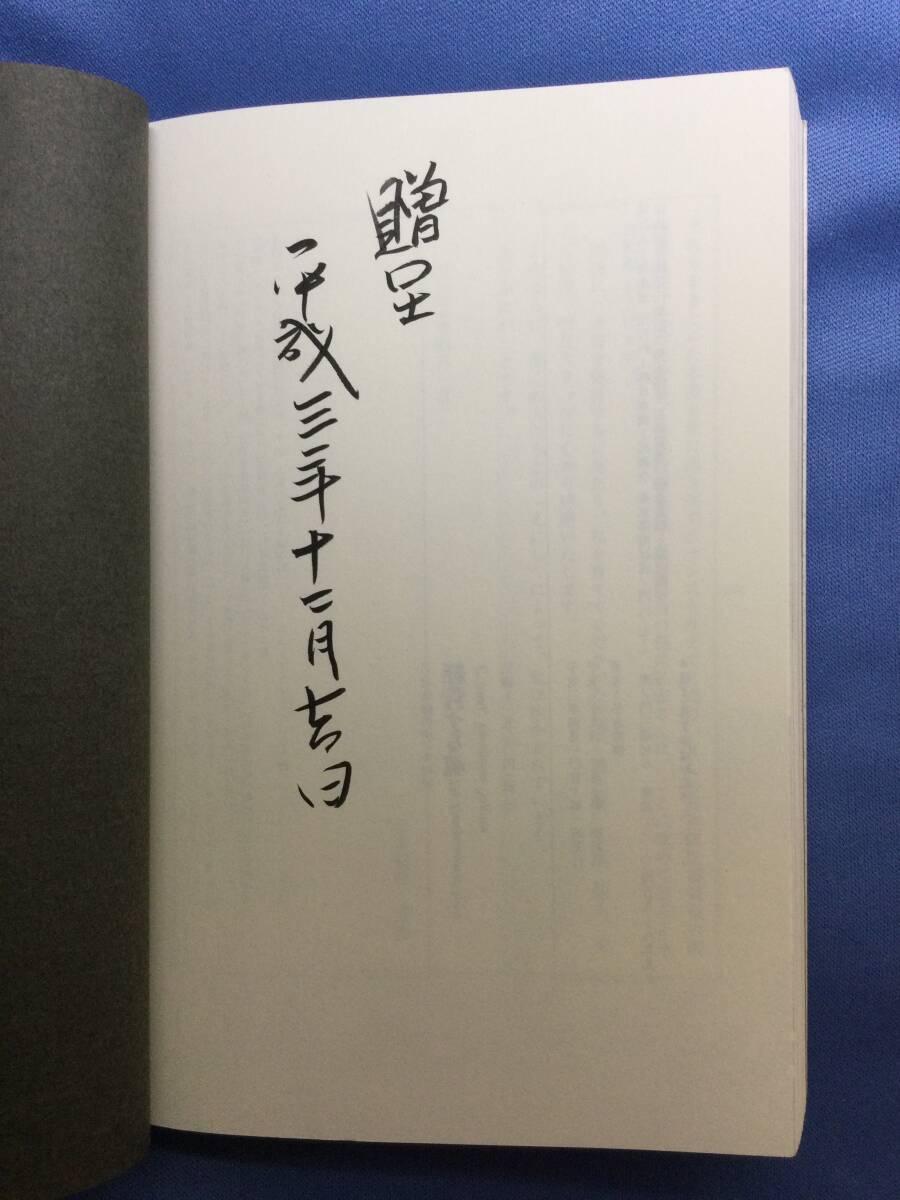 贈呈
平成三年十二月吉日